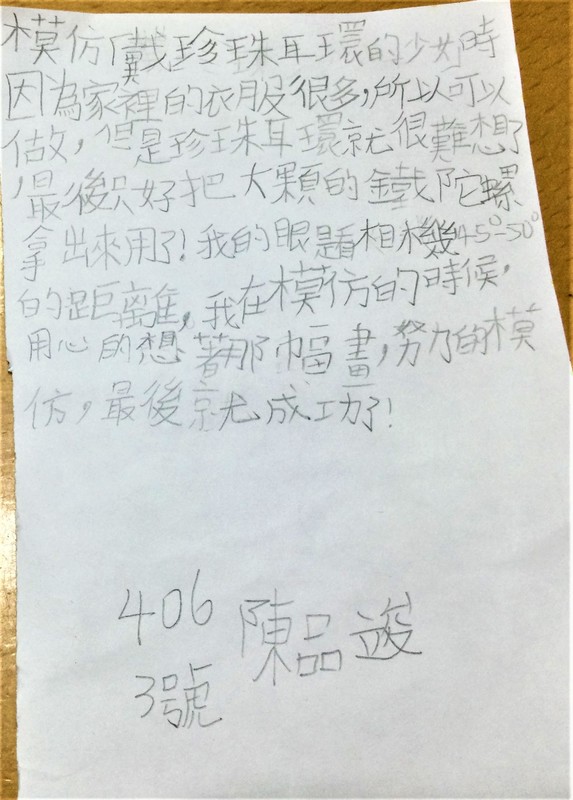 模仿戴珍珠耳環的少女時
因為家裡的衣服很多,所以可以
做,但是珍珠耳環就很難想了
,最後只好把大顆的鐵陀螺
拿出來用了!我的眼看相機45°-50°
的距離,我在模仿的時候,
用心的想著那幅畫,努力的模
仿,最後就成功了!
406 陳品逡
3號